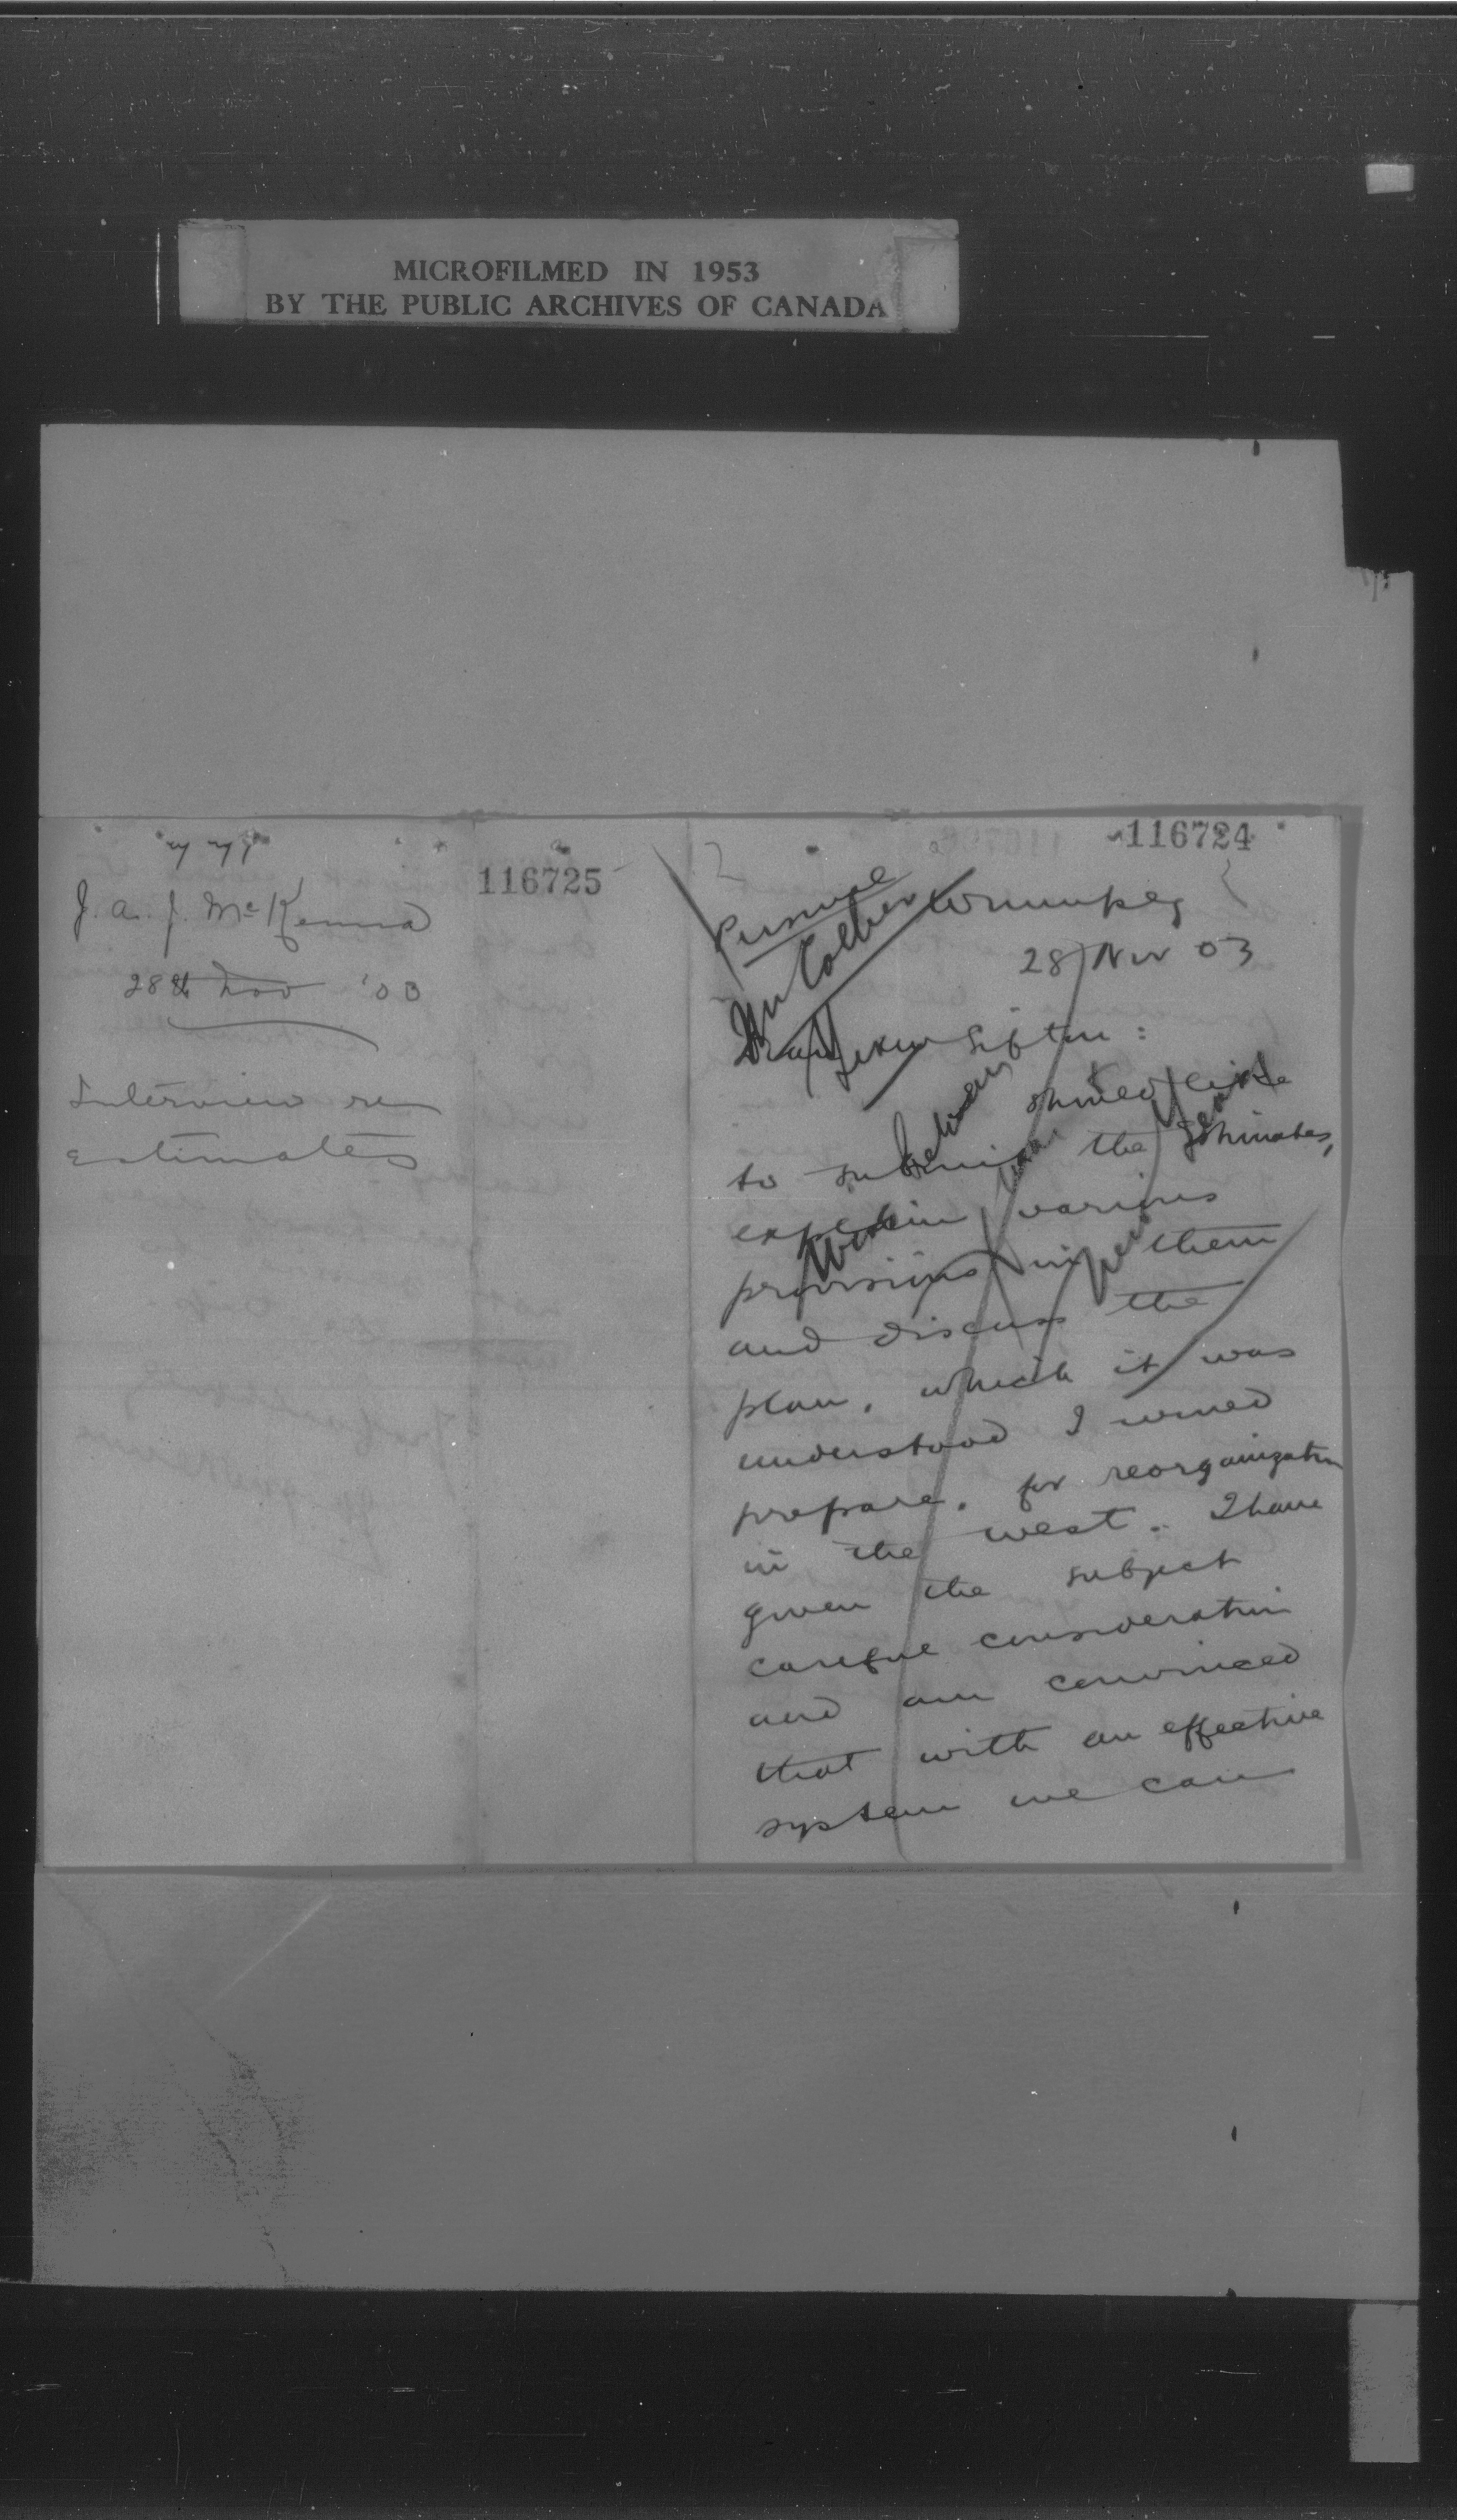 MICROFILMED IN 1953
BY THE PUBLIC ARCHIVES OF CANADA
J. A. J. McKenna
28th Nov '03
Interview re
estimates
116725
116724
Personal
Mr Collier
Winnipeg
28 Nov 03
Dear Mr Sifton:
I should like
to submit the Estimates,
explain various
provisions in them
and discuss the
plan, which it was
understood I would
prepare, for reorganization
in the west. I have
given the subject
careful consideration
and am convinced
that with an effective
system we can